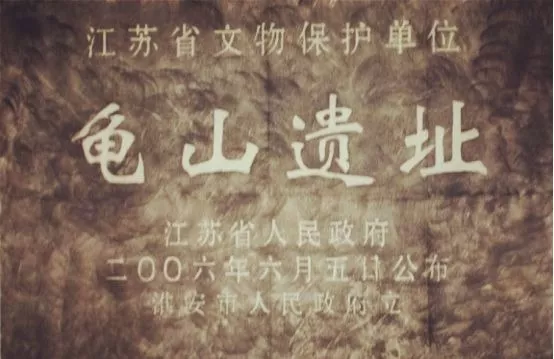 江苏省文物保护单位
龟山遗址
江苏省人民政府
二〇〇六年六月五日公布
淮安市人民政府立